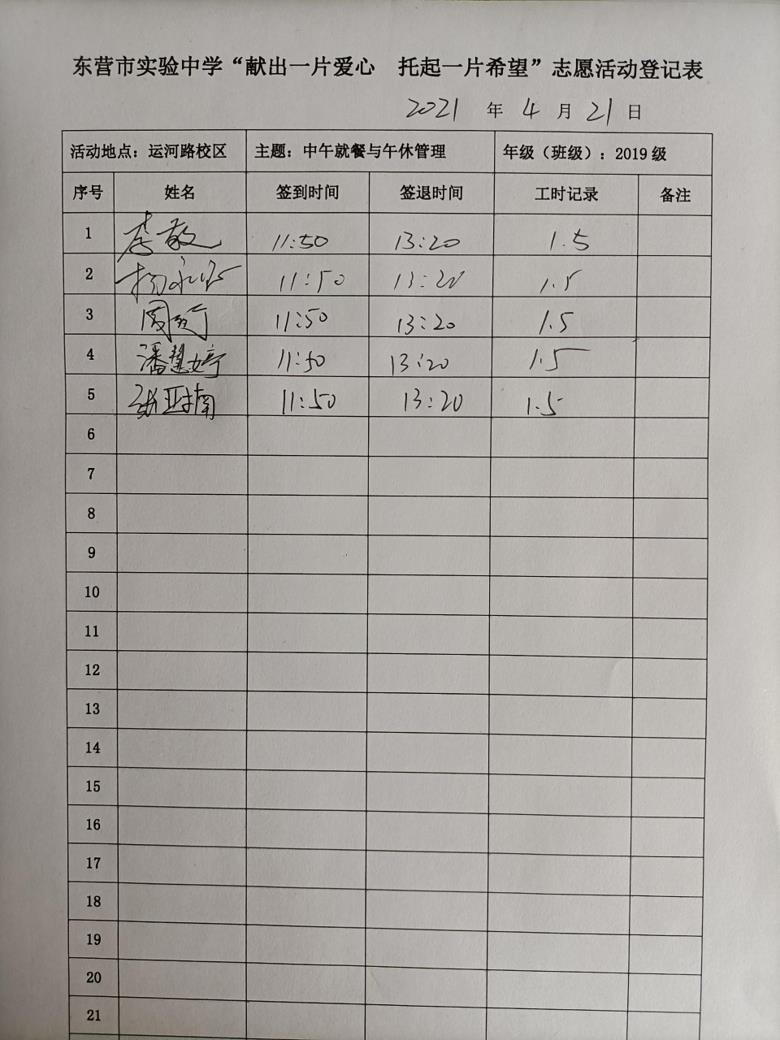 东营市实验中学“献出一片爱心 托起一片希望”志愿活动登记表
2021 年 4 月 21 日
活动地点：运河路校区 主题：中午就餐与午休管理 年级（班级）：2019 级
序号 姓名 签到时间 签退时间 工时记录 备注
1 李敏 11:50 13:20 1.5
2 11:50 13:20 1.5
3 11:50 13:20 1.5
4 潘慧婷 11:50 13:20 1.5
5 11:50 13:20 1.5
6
7
8
9
10
11
12
13
14
15
16
17
18
19
20
21